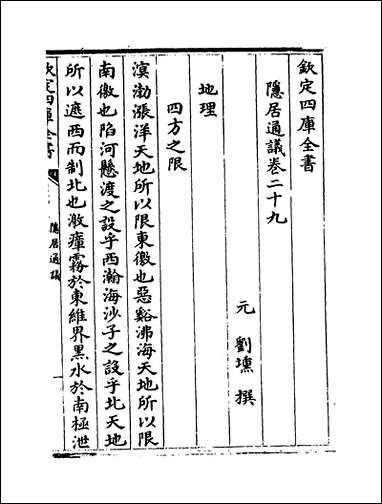 欽定四庫全書
隱居通議卷二十九
元 劉壎 撰
地理
四方之限
溟渤漲洋天地所以限東徼也惡谿沸海天地所以限
南徼也陷河懸渡之設乎西瀚海沙子之設乎北天地
所以遮西而制北也激瘴霧於東維界黑水於南極泄
欽定四庫全書
隱居通議
一